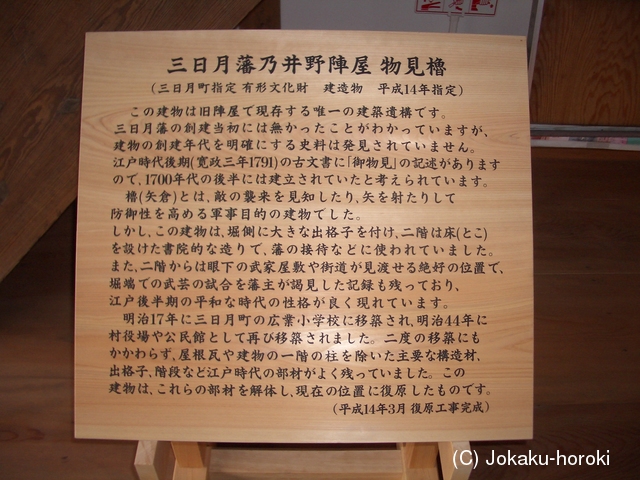 三日月藩乃井野陣屋 物見櫓
(三日月町指定 有形文化財　建造物　平成14年指定)
この建物は旧陣屋で現存する唯一の建築遺構です。
三日月藩の創建当初には無かったことがわかっていますが、
建物の創建年代を明確にする史料は発見されていません。
江戸時代後期(寛政三年1791)の古文書に「御物見」の記述があります
ので、1700年代の後半には建立されていたと考えられています。
櫓(矢倉)とは、敵の襲来を見知したり、矢を射たりして
防御性を高める軍事目的の建物でした。
しかし、この建物は、堀側に大きな出格子を付け、二階は床(とこ)
を設けた書院的な造りで、藩の接待などに使われていました。
また、二階からは眼下の武家屋敷や街道が見渡せる絶好の位置で、
堀端での武芸の試合を藩主が謁見した記録も残っており、
江戸後半期の平和な時代の性格が良く現れています。
明治17年に三日月町の広業小学校に移築され、明治44年に
村役場や公民館として再び移築されました。二度の移築にも
かかわらず、屋根瓦や建物の一階の柱を除いた主要な構造材、
出格子、階段など江戸時代の部材がよく残っていました。この
建物は、これらの部材を解体し、現在の位置に復原したものです。
(平成14年3月 復原工事完成)
(C) Jokaku-horoki